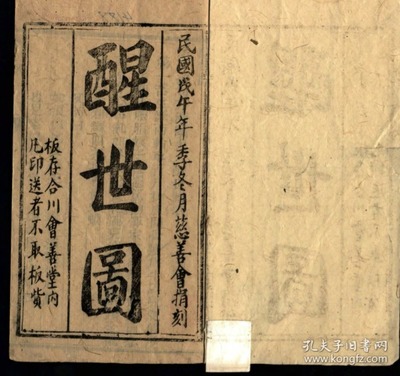 民國戊午年季冬月慈善會捐刻
醒世圖
板存合川會善堂内
凡印送者不取板貲
孔夫子旧书网
www.kongfz.com